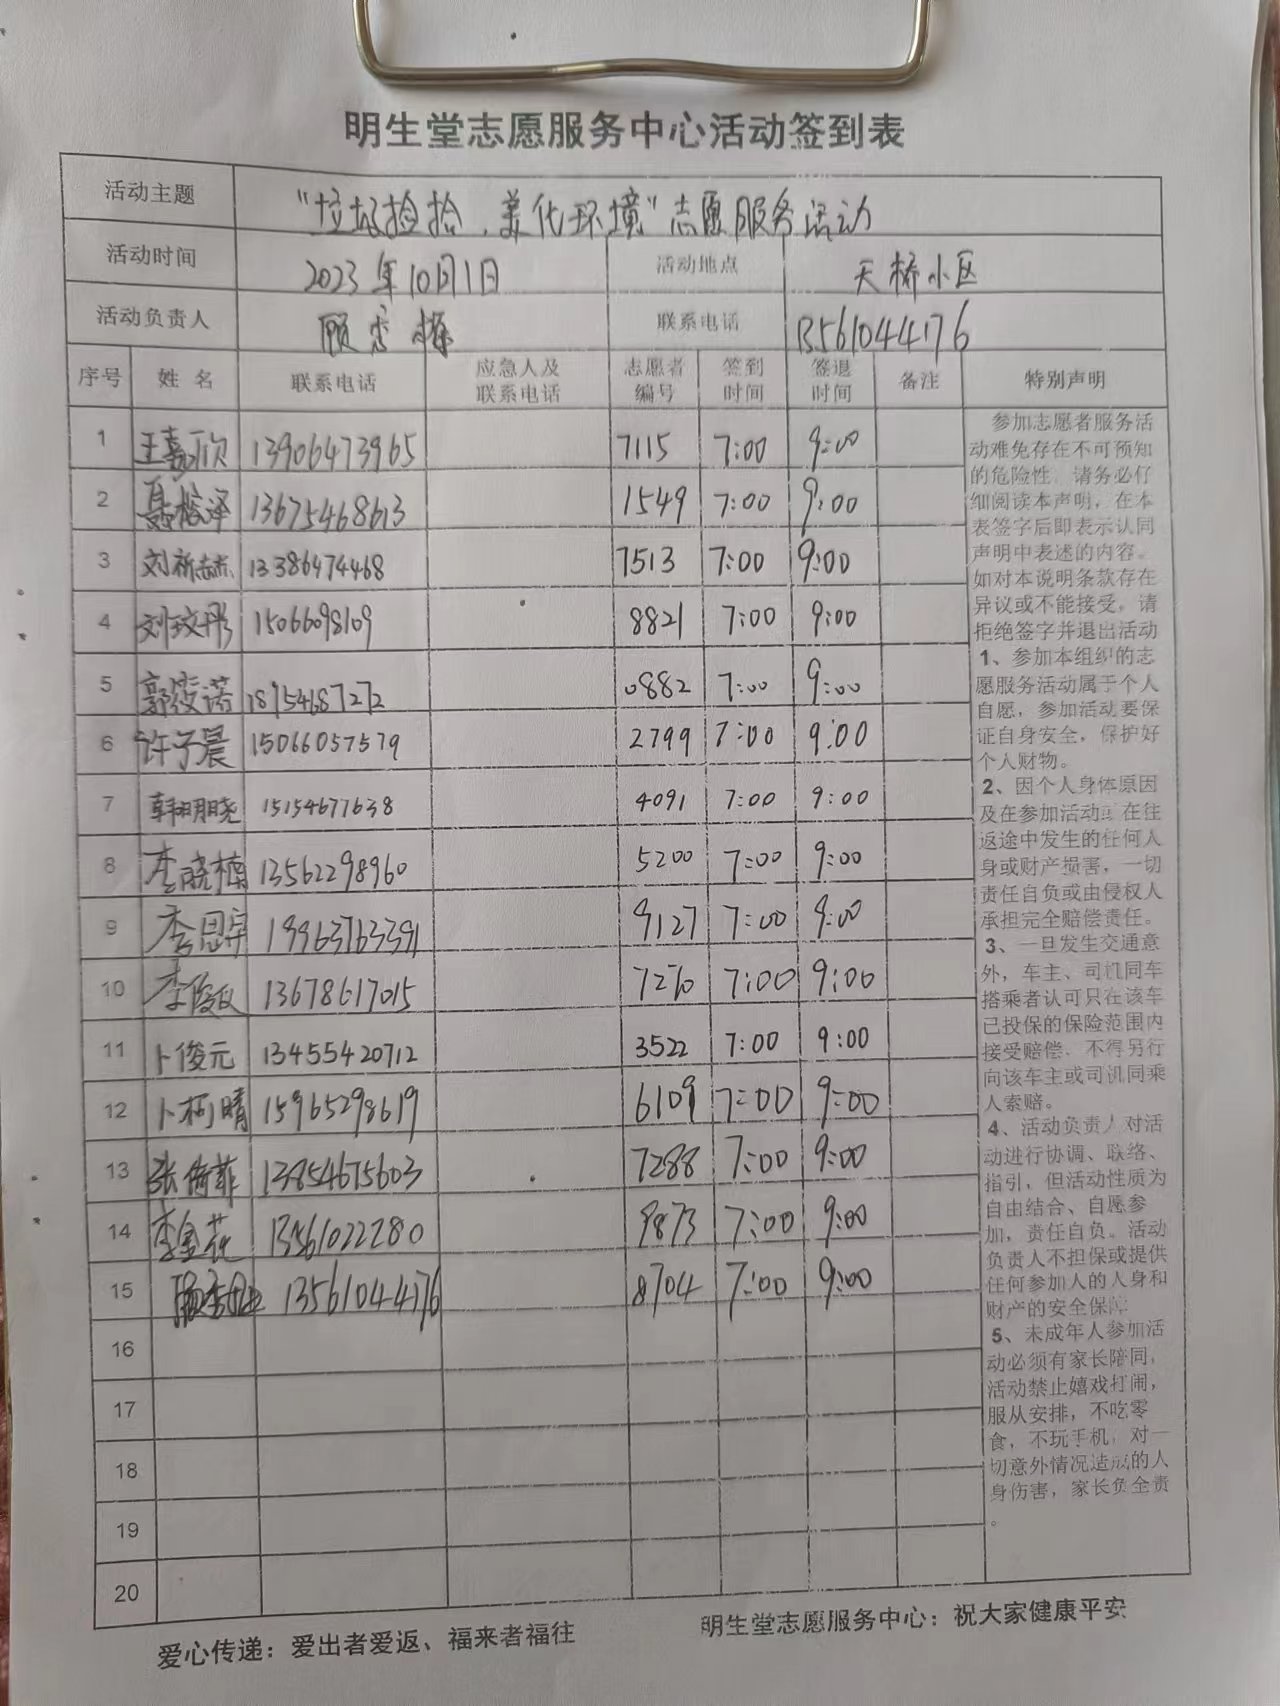 明生堂志愿服务中心活动签到表
活动主题 "垃圾捡拾、美化环境"志愿服务活动
活动时间 2023年10月1日 活动地点 天桥小区
活动负责人 顾秀 联系电话 13561044176
序号 姓名 联系电话 应急人及联系电话 志愿者编号 签到时间 签退时间 备注 特别声明
1 王嘉欣 13906473965 7115 7:00 9:00
2 聂榕泽 13675468613 1549 7:00 9:00
3 刘祈 13386474468 7513 7:00 9:00
4 刘玟彤 15066098109 8821 7:00 9:00
5 郭筱诺 18954687272 0882 7:00 9:00
6 许子晨 15066057579 2799 7:00 9:00
7 韩明晓 15154677638 4091 7:00 9:00
8 李晓楠 13562298960 5200 7:00 9:00
9 李思宇 19963763391 9127 7:00 9:00
10 李俊 13678617015 7:00 9:00
11 卜俊元 13455420712 3522 7:00 9:00
12 卜柯晴 15965298619 6109 7:00 9:00
13 张倚菲 13854675603 7288 7:00 9:00
14 李金花 13561022280 9873 7:00 9:00
15 顾秀 13561044176 8704 7:00 9:00
16
17
18
19
20
参加志愿者服务活
动难免存在不可预知
的危险性，请务必仔
细阅读本声明，在本
表签字后即表示认同
声明中表述的内容。
如对本说明条款存在
异议或不能接受，请
拒绝签字并退出活动
1、参加本组织的志
愿服务活动属于个人
自愿，参加活动要保
证自身安全，保护好
个人财物。
2、因个人身体原因
及在参加活动或在往
返途中发生的任何人
身或财产损害，一切
责任自负或由侵权人
承担完全赔偿责任。
3、一旦发生交通意
外，车主、司机同车
搭乘者认可只在该车
已投保的保险范围内
接受赔偿，不得另行
向该车主或司机同乘
人索赔。
4、活动负责人对活
动进行协调、联络、
指引，但活动性质为
自由结合、自愿参
加，责任自负。活动
负责人不担保或提供
任何参加人的人身和
财产的安全保障
5、未成年人参加活
动必须有家长陪同，
活动禁止嬉戏打闹，
服从安排，不吃零
食，不玩手机，对一
切意外情况造成的人
身伤害，家长负全责
。
爱心传递：爱出者爱返、福来者福往 明生堂志愿服务中心：祝大家健康平安